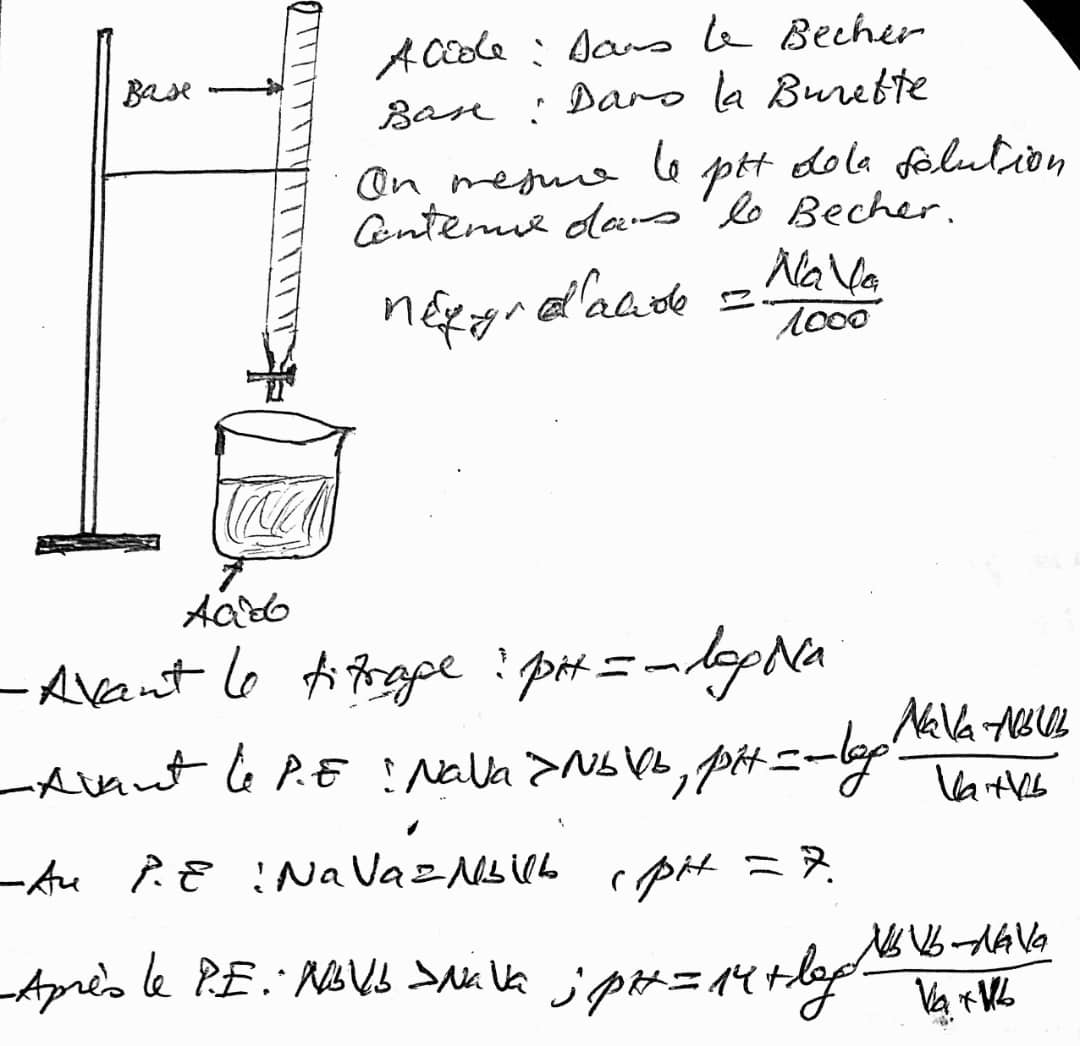 Acide : Dans le Becher
Base
Base : Dans la Burette
On mesure le pH de la solution
Contenue dans le Becher.
néq-gr d'acide = NaVa/1000
Acide
- Avant le titrage : pH = - log Na
- Avant le P.E : NaVa > NbVb, pH = - log NaVa - NbVb / Va + Vb
- Au P.E : NaVa = NbVb , pH = 7.
- Après le P.E : NbVb > NaVa ; pH = 14 + log NbVb - NaVa / Va + Vb